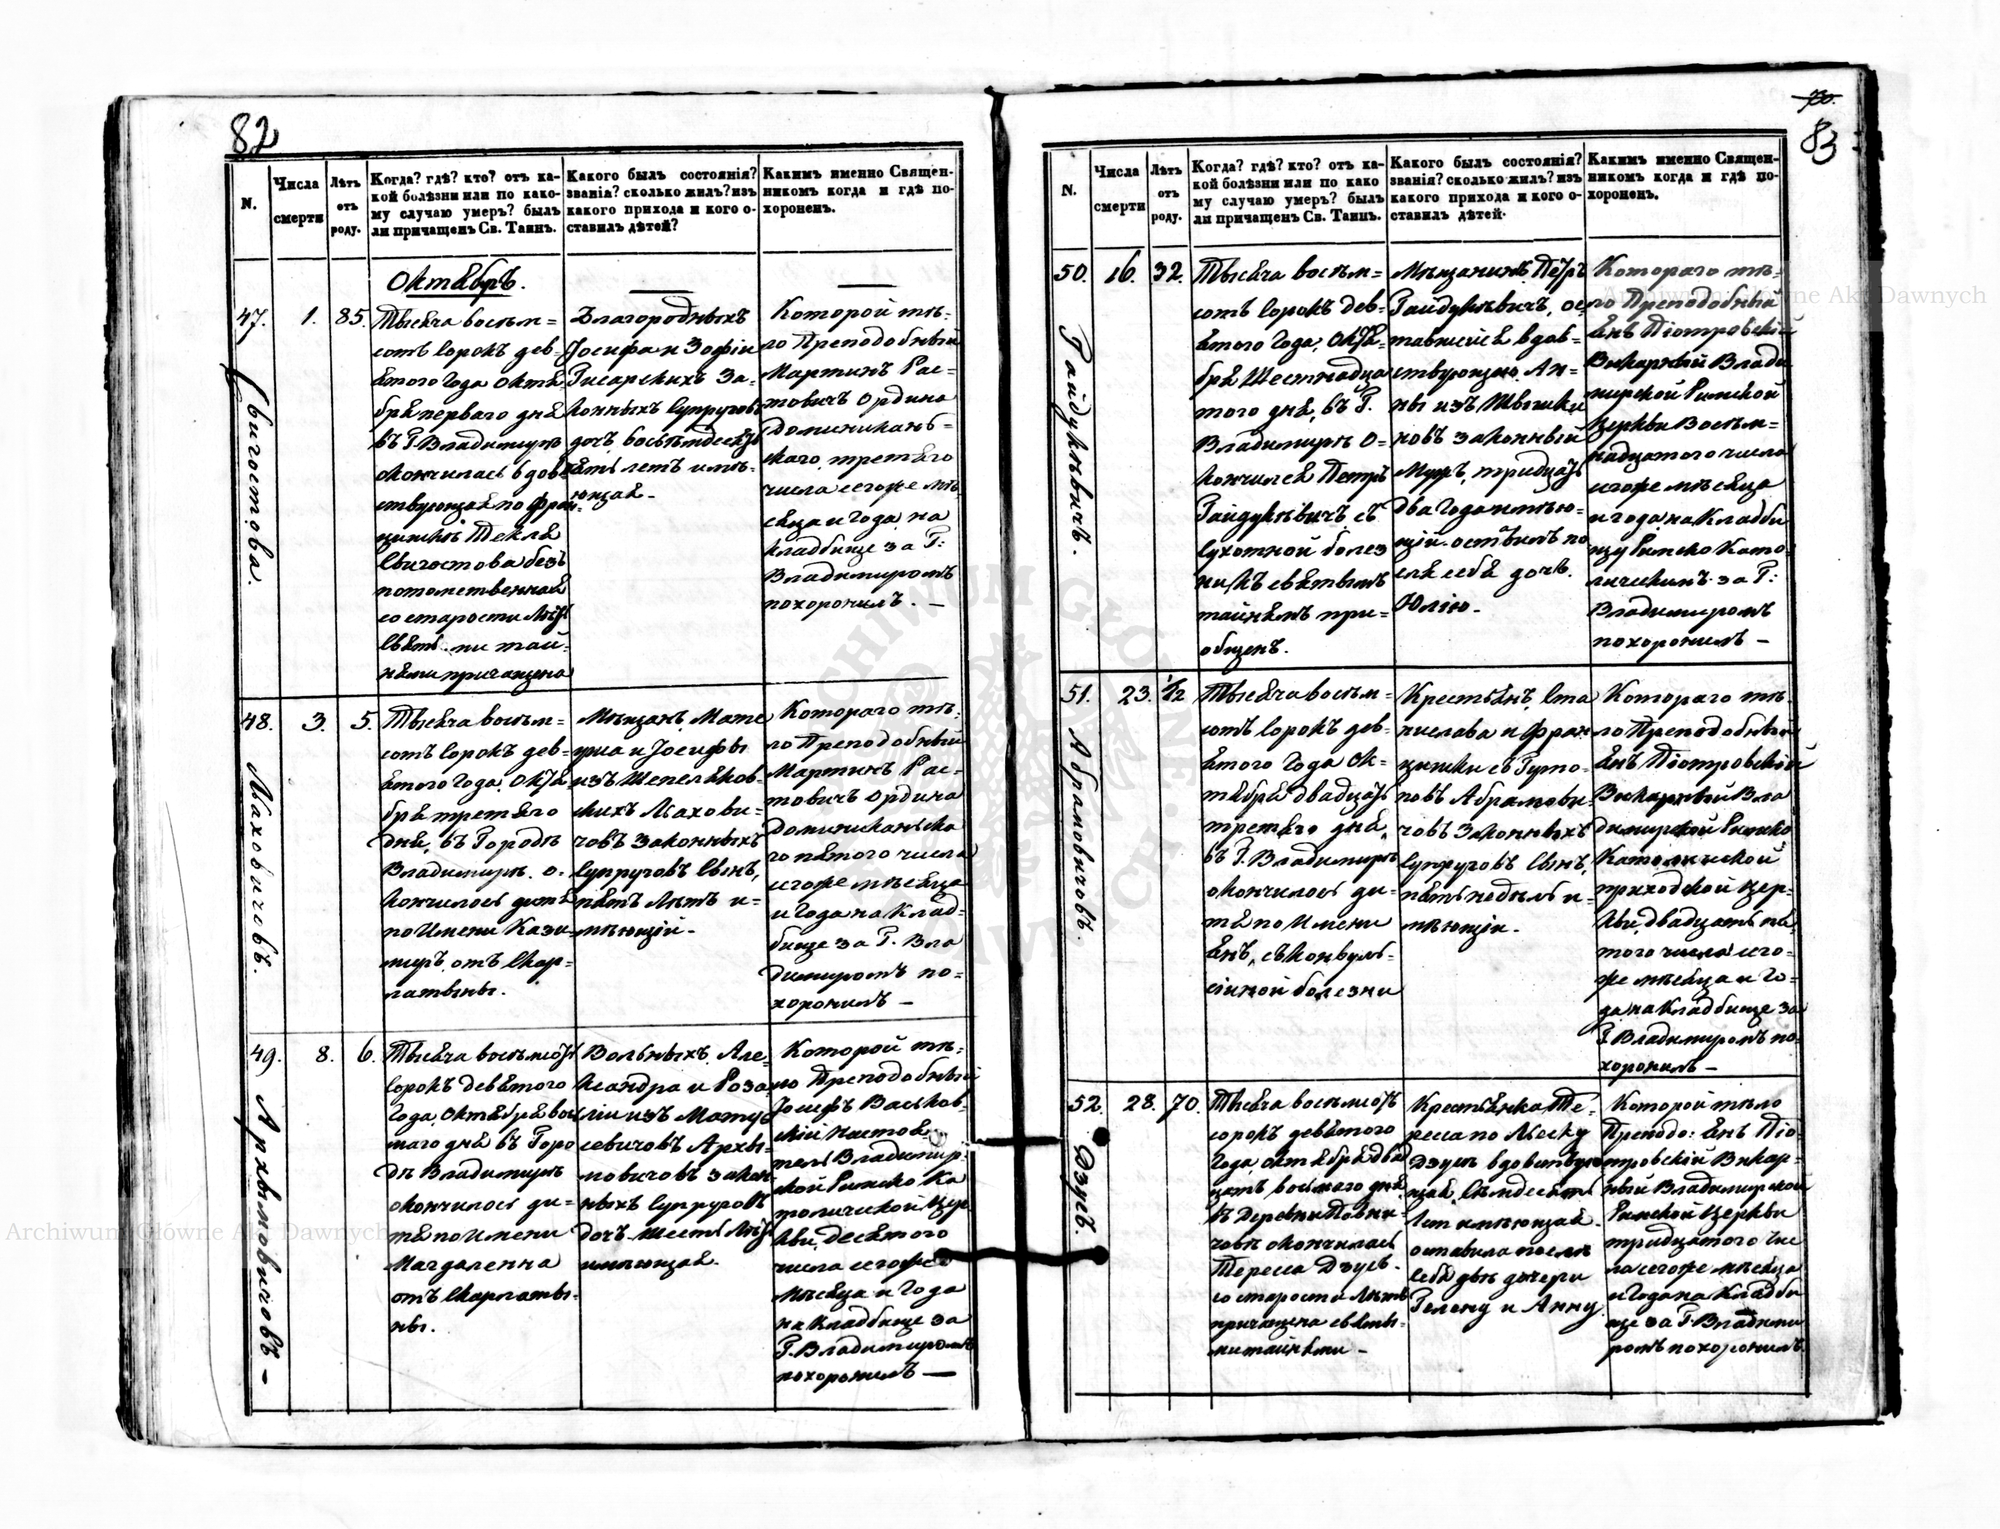 82
N.
Числа смерти
Лѣтъ отъ роду.
Когда? гдѣ? кто? отъ ка-
кой болѣзни или по како-
му случаю умеръ? былъ
ли причащенъ Св. Таинъ.
Какого былъ состоянія?
званія? сколько жилъ? изъ
какого прихода и кого о-
ставилъ дѣтей?
Какимъ именно Священ-
никомъ когда и гдѣ по-
хороненъ.
Октябрь.
47.
Свигостова.
1.
85.
Тысяча восем=
сотъ сорокъ дев=
ятого Года Октя
бря перваго дня
въ Г. Владимирѣ
окончилась вдов
ствующая по Фран
цишкѣ Текля
Свигостова безъ
потомственная
со старости лѣтъ
Святы-ми тай=
нями причащена
Благородныхъ
Іосифа и Зофіи
Писарскихъ за=
конныхъ Супруговъ
дочь, восемдесятъ
пять летъ имѣ=
ющая.
Которой тѣ=
ло Преподобный
Мартинъ Рас=
товичъ Ордина
Доминикань=
скаго третяго
числа сегоже мѣ
сяца и Года на
кладбище за Г:
Владимиромъ
похоронилъ. —
48.
Маховичовъ.
3.
5.
Тысяча восем=
сотъ сорокъ дев=
ятого Года Октя
бря третяго
дня, въ Городѣ
Владимирѣ о=
кончилось дитя
по Имени Кази
миръ, отъ Скар=
латыны.
Мѣщанъ Мате
уша и Іосифы
изъ Шепеляков=
скихъ Махови=
човъ законныхъ
Супруговъ Сынъ,
пять лѣтъ и=
мѣющій.
Котораго тѣ=
ло Преподобный
Мартинъ Рас=
товичъ Ордина
Доминиканска
го пятого числа
сегоже мѣсяца
и Года на Клад=
бище за Г. Вла
димиромъ по=
хоронилъ —
49.
8.
6.
Тысяча восемсотъ
сорокъ девятого
Года Октября вось
маго дня въ Горо
дѣ Владимирѣ
окончилось ди=
тя по Имени
Магдаленна
отъ Скарлаты=
ны.
Вольныхъ Але=
ксандра и Роза
ліи изъ Матус
севичовъ Архы=
мовичовъ закон
ныхъ Супруговъ
Дочь шесть лѣтъ
имѣющая.
Которой тѣ=
ло Преподобный
Іосифъ Васьков=
скій Настоя
тель Владимир
ской Римско Ка
толической Цер
кви, десятого
числа сегоже
Мѣсяца и Года
на Кладбище за
Г. Владимиромъ
похоронилъ —
83
N.
Числа смерти
Лѣтъ отъ роду.
Когда? гдѣ? кто? отъ ка-
кой болѣзни или по како
му случаю умеръ? былъ
ли причащенъ Св. Таинъ.
Какого былъ состоянія?
званія? сколько жилъ? изъ
какого прихода и кого о-
ставилъ дѣтей.
Какимъ именно Священ-
никомъ когда и гдѣ по-
хороненъ.
50.
Гайдукѣвичъ.
16.
32.
Тысяча восем=
сотъ сорокъ дев=
ятого Года, Октя=
бря Шестнадца
того дня, въ Г.
Владимирѣ о=
кончился Петръ
Гайдукѣвичъ съ
Сухотной болез
ни, къ святымъ
тайнямъ при=
общенъ.
Мѣщанинъ Петръ
Гайдукѣвичъ, ос=
тавшейся вдов=
ствующею Ан=
ны изъ
новъ законный
Мужъ, тридцать
два Года имѣю=
щій. оставилъ по
сля себя дочь.
Юлію.
Котораго тѣ=
ло Преподобный
Янъ Піотровскій
Викарный Влади
мирской Римской
Церкви Восем=
надцатого числа
сегоже мѣсяца
и года на Кладби
щу Римско Като
лическимъ за Г:
Владимиромъ
похоронилъ —
51.
Абрамовичовъ.
23.
1/2
Тысяча восем=
сотъ сорокъ дев=
ятого Года Ок=
тября двадцать
третяго дня,
въ Г. Владимирѣ
окончилось ди=
тя по Имени
Янъ, съ конвуль=
сійной болезни
Крестьянъ, Ста
нислава и Фран
цишки съ Гуто=
повъ Абрамови=
човъ законныхъ
Супруговъ Сынъ,
пять недѣль и=
мѣющій.
Котораго тѣ=
ло Преподобный
Янъ Піотровскій
Викарный Вла
димирской Римско
Католической
приходской Цер=
кви, двадцать пя
того числа сего=
же мѣсяца и Го=
да на Кладбище за
Г. Владимиромъ по=
хоронилъ —
52.
Дзусъ.
28.
70.
Тысяча восемсотъ
сорокъ девятого
Года, октября двад
цать восьмаго дня
въ Деревни
окончилась
Тересса Дзусъ
со старости лѣтъ
причащена святы=
ми тайнями —
Крестьянка Те=
ресса по
Дзусъ вдовствую
щая, Семдесятъ
Лет имѣющая.
оставила послѣ
себя двѣ дочери
Гелену и Анну
Которой тѣло
Преподо: Янъ Піо=
тровскій Викар=
ный Владимирской
Римской Церкви
тридцатого чи
сла сегоже мѣсяца
и Года на Кладби
ще за Г. Владими
ромъ похоронилъ.
Archiwum Główne Akt Dawnych
Archiwum Główne Akt Dawnych
ARCHIWUM GŁÓWNE AKT DAWNYCH